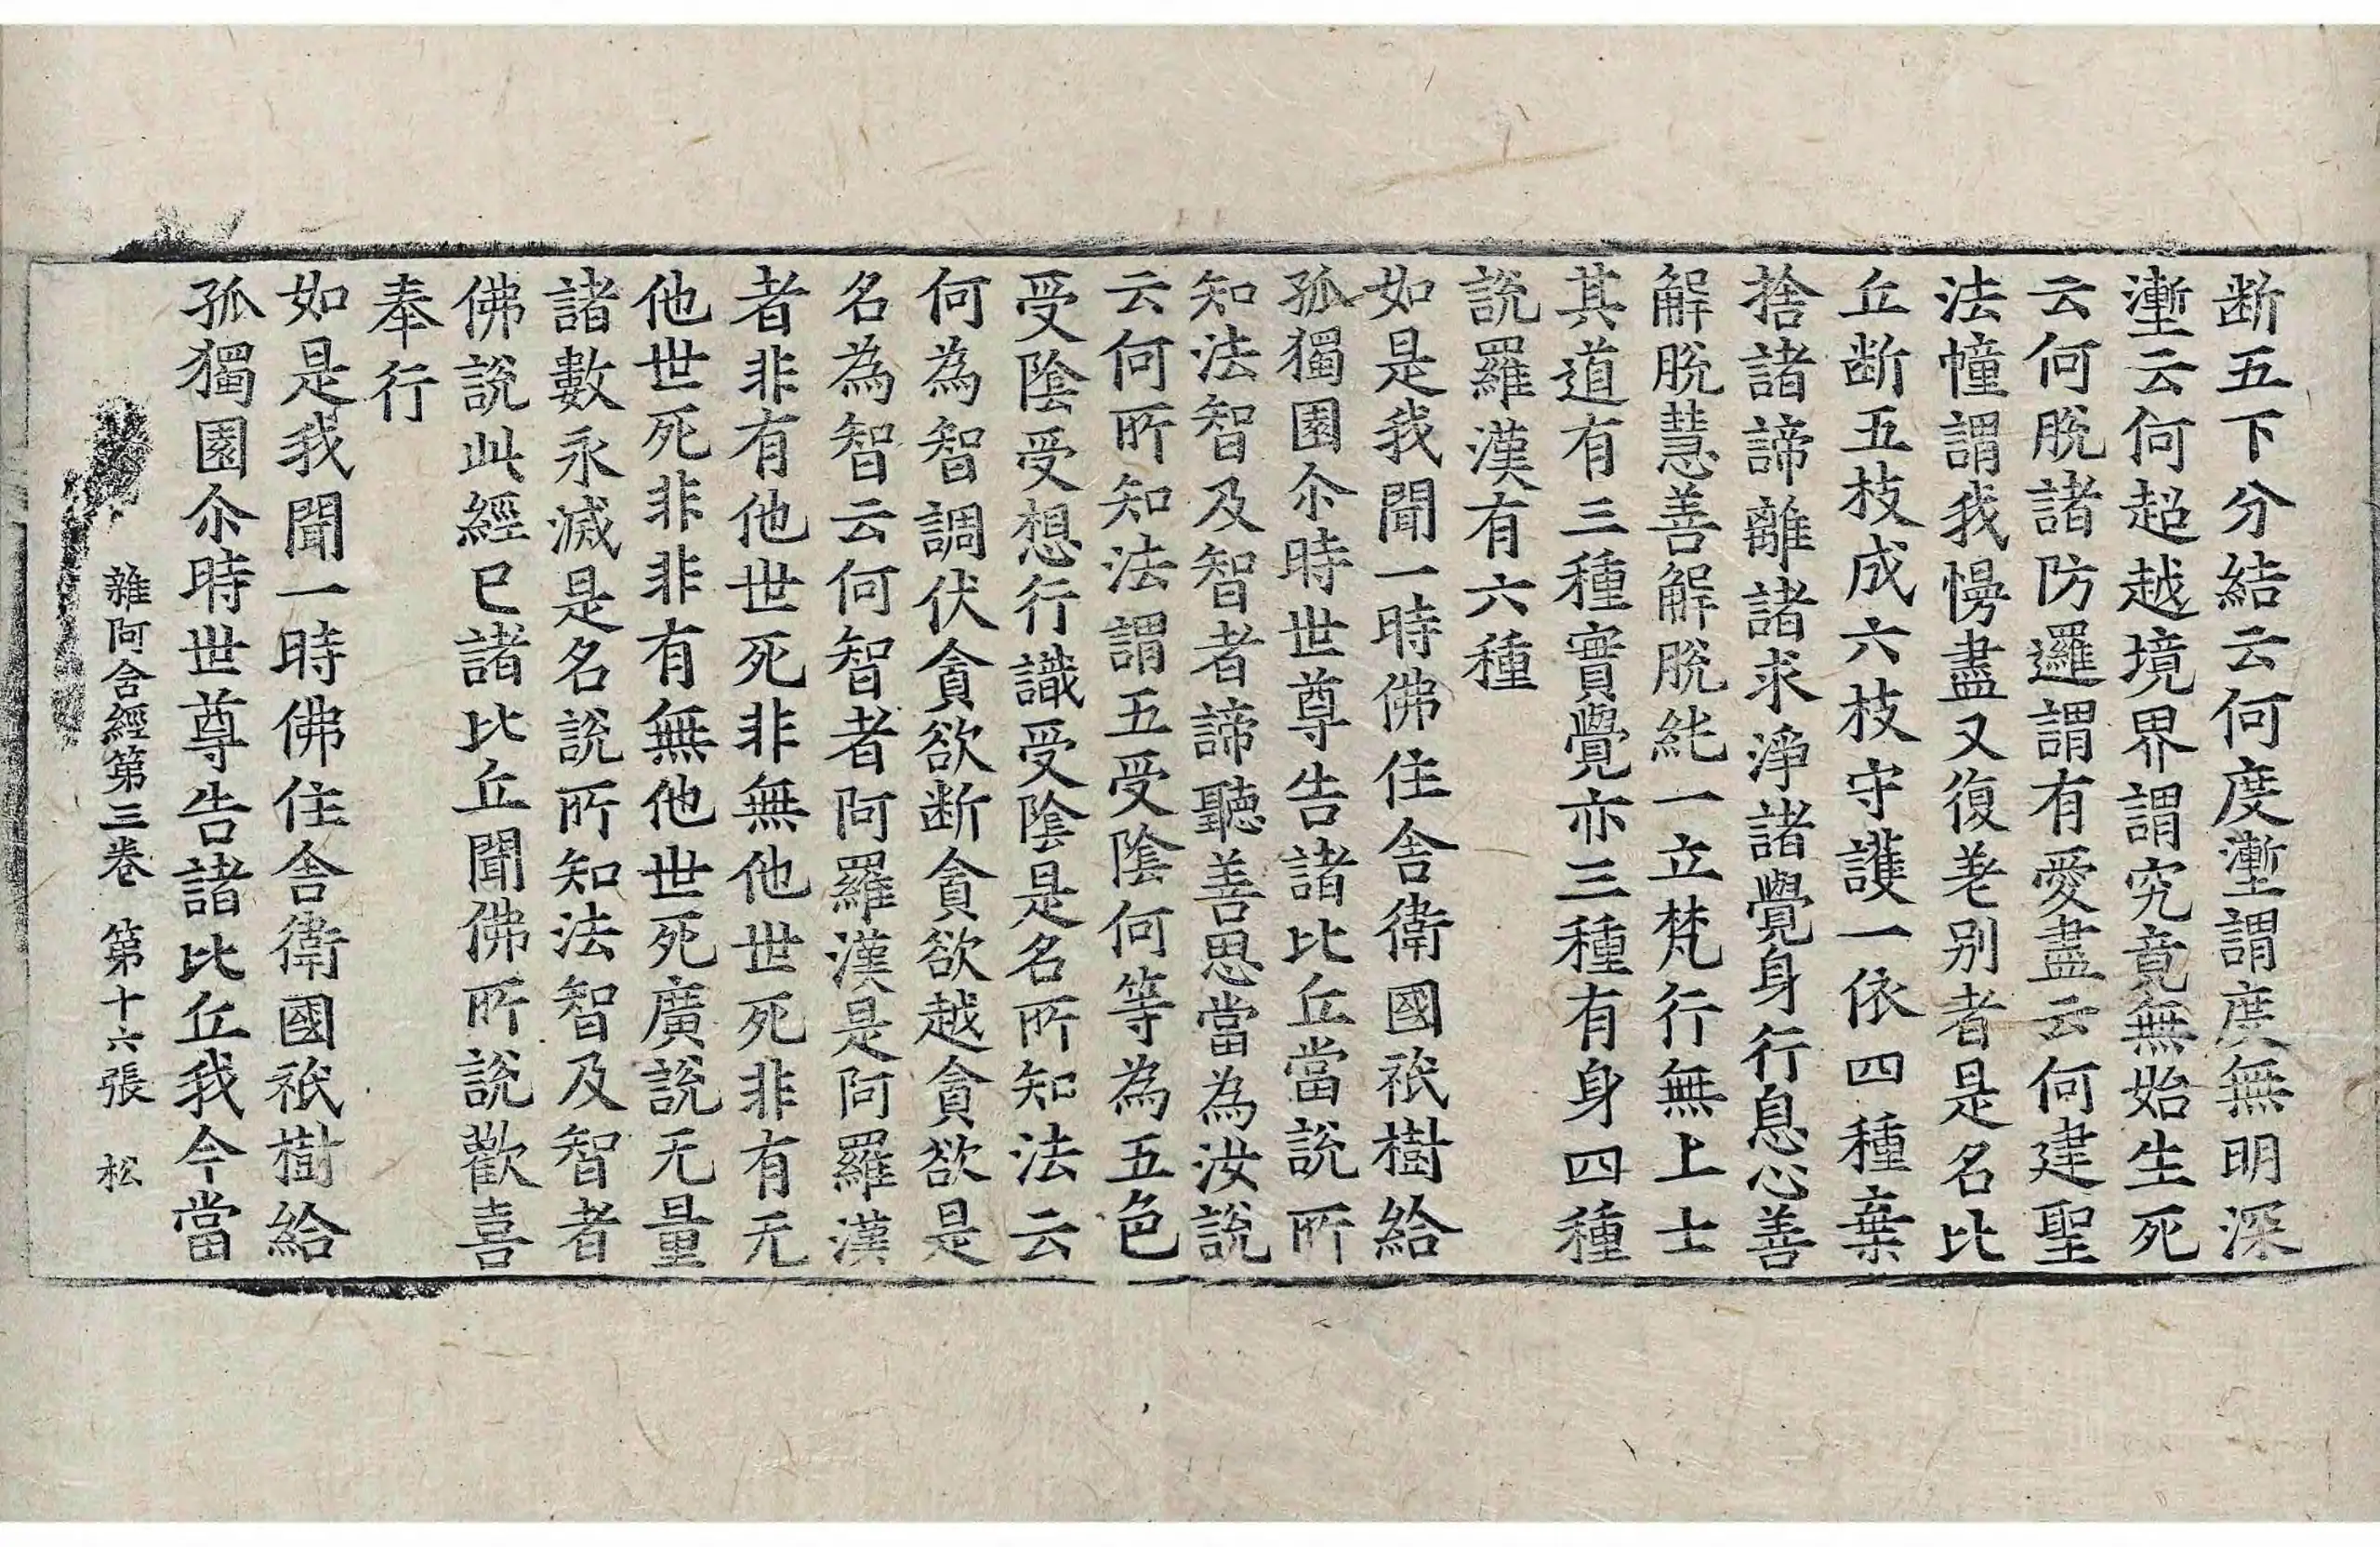 断五下分結云何度壍謂度無明深
壍云何超越境界謂究竟無始生死
云何脫諸防邏謂有愛盡云何建聖
法幢謂我慢盡又復差别者是名比
丘断五枝成六枝守護一依四種棄
捨諸諦離諸求淨諸覺身行息心善
解脫慧善解脫純一立梵行無上士
其道有三種實覺亦三種有身四種
說羅漢有六種
如是我聞一時佛住舍衛國祇樹給
孤獨園尒時世尊告諸比丘當說所
知法智及智者諦聽善思當為汝說
云何所知法謂五受陰何等為五色
受陰受想行識受陰是名所知法云
何為智調伏貪欲断貪欲越貪欲是
名為智云何智者阿羅漢是阿羅漢
者非有他世死非無他世死非有无
他世死非非有無他世死廣說无量
諸數永滅是名說所知法智及智者
佛說此經已諸比丘聞佛所說歡喜
奉行
如是我聞一時佛住舍衛國祇樹給
孤獨園尒時世尊告諸比丘我今當
雜阿含經第三卷 第十六張 松